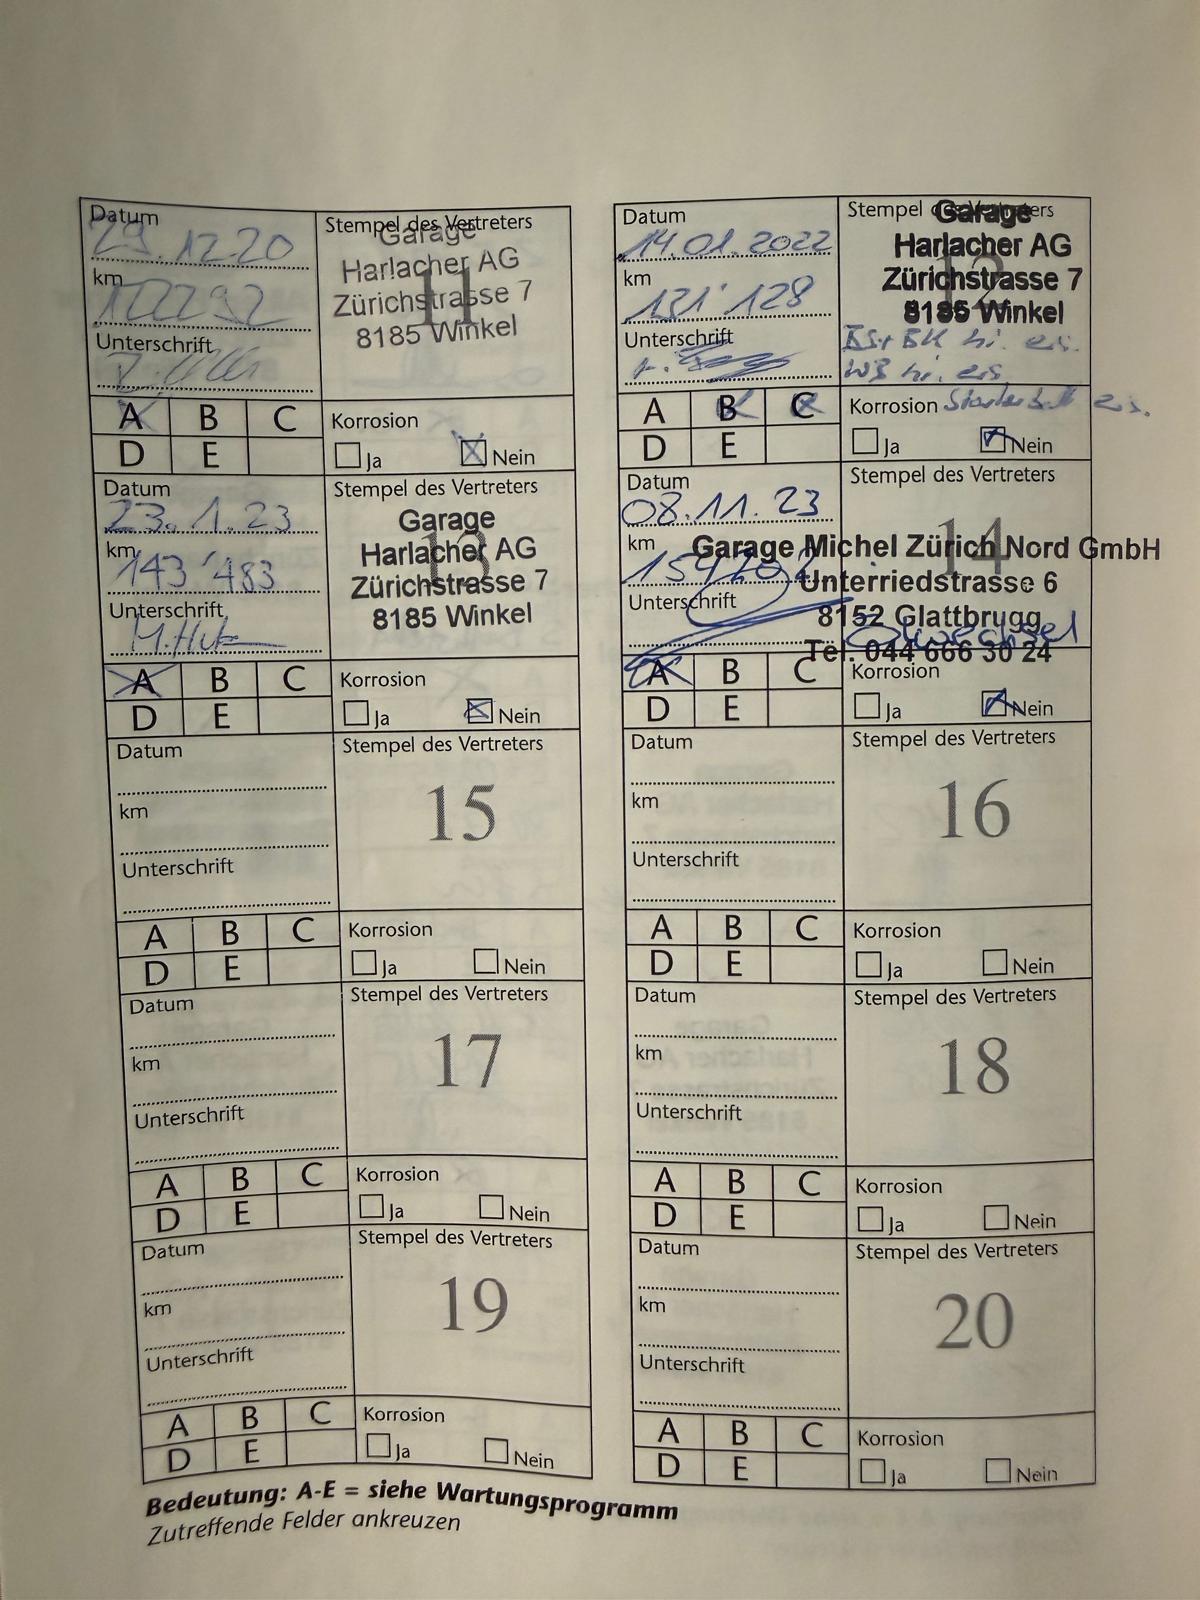 Datum
29.12.20
km
122292
Unterschrift
Stempel des Vertreters
11
Garage
Harlacher AG
Zürichstrasse 7
8185 Winkel
A B C
D E
Korrosion
Ja Nein
Datum
14.01.2022
km
131'128
Unterschrift
Stempel des Vertreters
12
Garage
Harlacher AG
Zürichstrasse 7
8185 Winkel
BK hi. ers.
hi. ers
A B C
D E
Korrosion
ers.
Ja Nein
Datum
23.1.23
km
143'483
Unterschrift
Stempel des Vertreters
13
Garage
Harlacher AG
Zürichstrasse 7
8185 Winkel
A B C
D E
Korrosion
Ja Nein
Datum
08.11.23
km
Unterschrift
Stempel des Vertreters
14
Garage Michel Zürich Nord GmbH
Unterriedstrasse 6
8152 Glattbrugg
Ölwechsel
Tel. 044 666 30 24
A B C
D E
Korrosion
Ja Nein
Datum
km
Unterschrift
Stempel des Vertreters
15
A B C
D E
Korrosion
Ja Nein
Datum
km
Unterschrift
Stempel des Vertreters
16
A B C
D E
Korrosion
Ja Nein
Datum
km
Unterschrift
Stempel des Vertreters
17
A B C
D E
Korrosion
Ja Nein
Datum
km
Unterschrift
Stempel des Vertreters
18
A B C
D E
Korrosion
Ja Nein
Datum
km
Unterschrift
Stempel des Vertreters
19
A B C
D E
Korrosion
Ja Nein
Datum
km
Unterschrift
Stempel des Vertreters
20
A B C
D E
Korrosion
Ja Nein
Bedeutung: A-E = siehe Wartungsprogramm
Zutreffende Felder ankreuzen